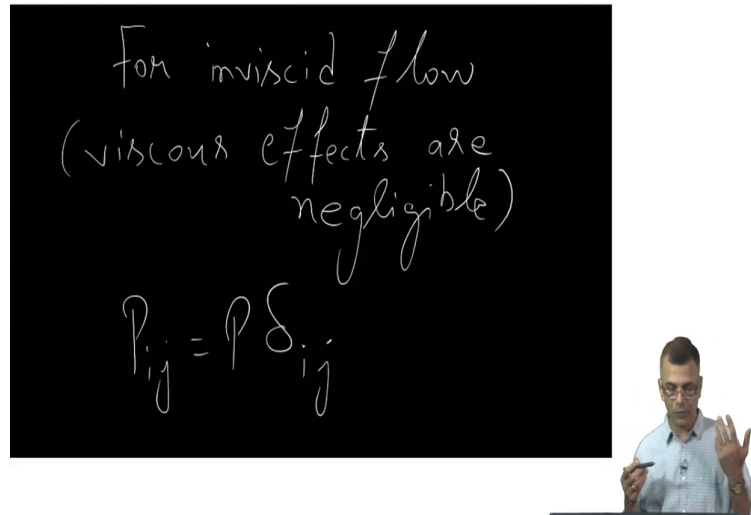 For inviscid flow
(viscous effects are
negligible)
P_ij = P δ_ij